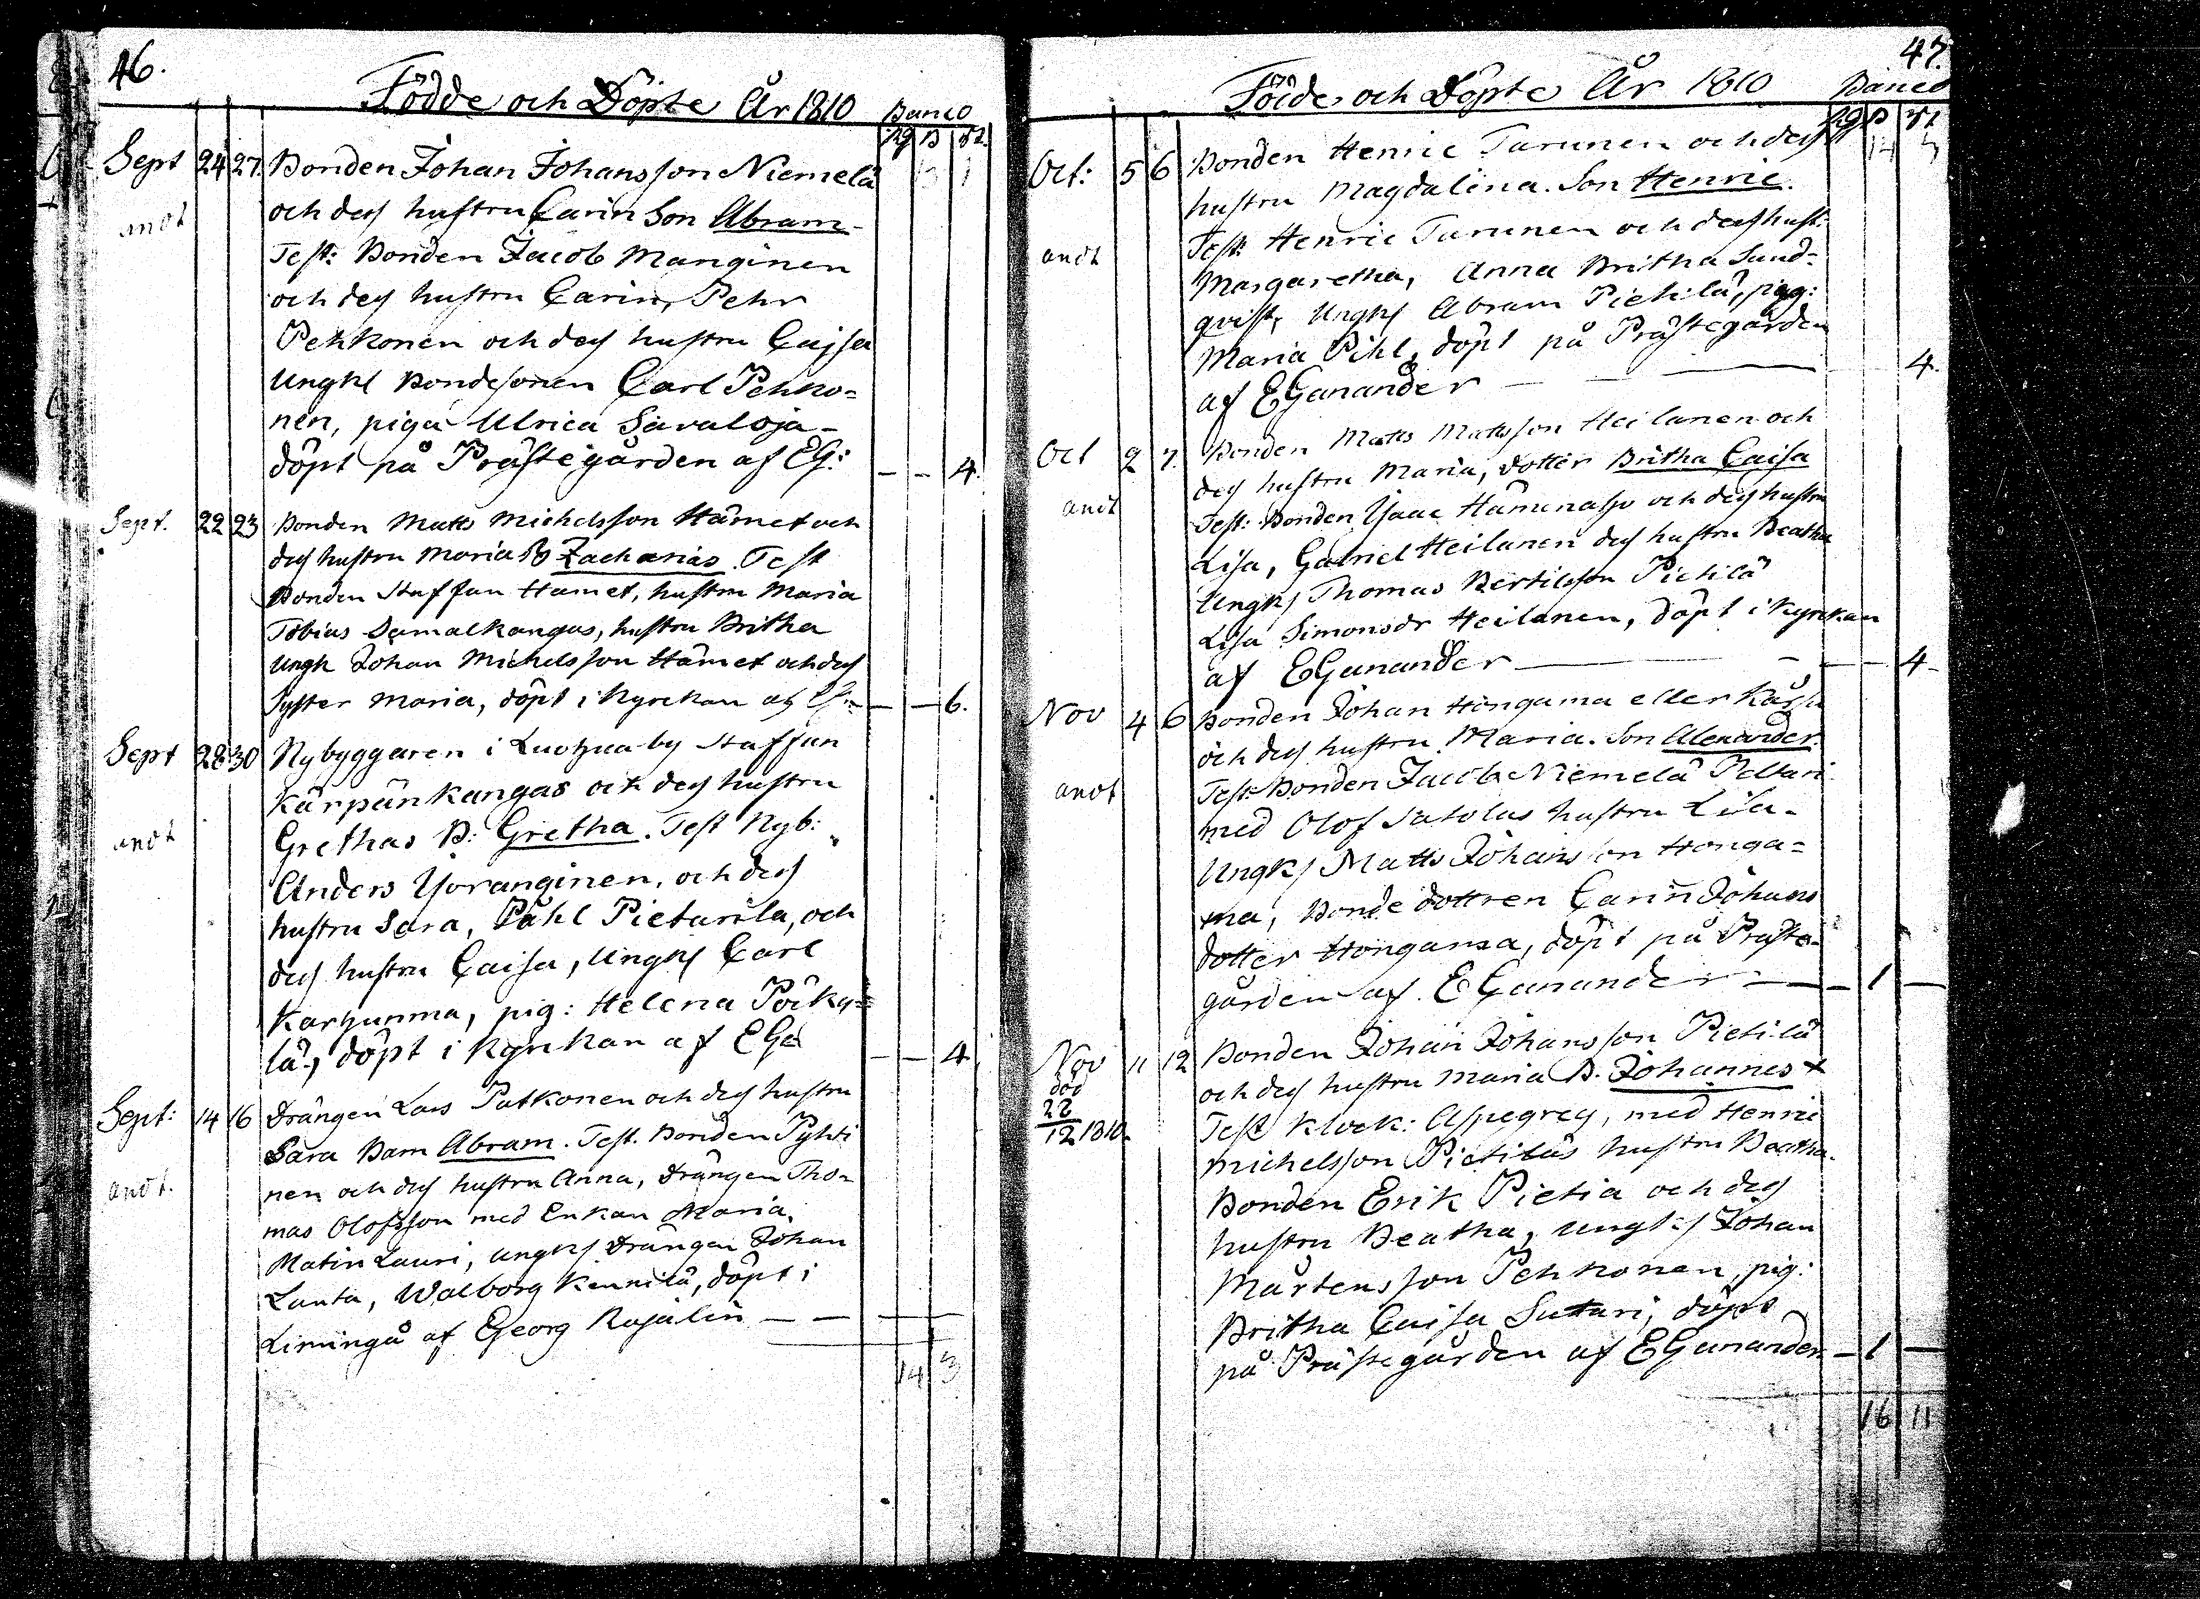 46.
Födde och Döpte År 1810 Banco
Rg ß rst.
Sept 24 27. Bonden Johan Johansson Niemelä
anot och dess hustru Carin Son Abram.
Test: Bonden Jacob Manginen
och dess hustru Carin, Pehr
Pehkonen och dess hustru Cajsa
Ungk Bondesonen Carl Pehko=
nen, piga Ulrica Savaloja-
döpt på Prästegården af EG: - - 4.
Sept. 22 23 Bonden Matts Michelsson Hamet och
dess hustru Maria B Zacharias. Test
Bonden Staffan Hamet, hustru Maria
Tobias Jamalkangas, hustru Britha
Ungk Johan Michelsson Hamet och dess
Syster Maria, döpt i Kyrckan af EG: - - 6.
Sept 28 30 Nybyggaren i Luohua by Staffan
Kärpänkangas och dess hustru
anot Grethas B: Gretha. Test Nyb:
Anders Yoranginen, och dess
hustru Sara, Påhl Pietarila, och
dess hustru Caisa, Ungk Carl
Karhunma, pig: Helena Poiky=
lä, döpt i Kyrkan af EGa - - 4
Sept: 14 16 Drängen Lars Patkonen och dess hustru
Sara Barn Abram. Test. Bonden Pyhti
anot. nen och dess hustru Anna, Drängen Tho=
mas Olofsson med Enkan Maria
Matin Lauri, Ungk Drängen Johan
Lanta, Walborg Kennilä, döpt i
Limingå af Georg Rajalin — — —
14 3
47.
Födde och Döpte År 1810 Banco
Rg ß rst
Oct: 5 6 Bonden Henric Turunen och dess
hustru Magdalena. Son Henric.
Test: Henric Turunen och dess hust:
anot Margaretha, Anna Britha Sund=
qvist, Ungk Abram Pietilä, pig:
Maria Pihl, döpt på Prästegården
af EGanander — 4.
Oct 2 7. Bonden Matts Mattsson Heilanen och
dess hustru Maria, dotter Britha Caisa
anot Test: Bonden Isaac och dess hustru
Lisa, Gabriel Heilanen dess hustru Beatha
Ungk Thomas Bertilsson Pietilä
Lisa Simonsdr Heilanen, döpt i Kyrkan
af EGanander — 4
Nov 4 6 Bonden Johan Hongama eller Karsu
och dess hustru Maria. Son Alexander.
anot Test: Bonden Jacob Niemelä Peltari
med Olof Satolas hustru Lisa.
Ungk Matts Johansson Honga=
ma, Bonde dottren Carin Johans
dotter Hongama, döpt på Präste=
gården af EGanander — 1 —
Nov 11 12 Bonden Johan Johansson Pietilä
död och dess hustru Maria B. Johannes +
22/12 1810. Test Klock: Aspegrey, med Henric
Michelsson Pietiläs hustru Beatha.
Bonden Erik Pietia och dess
hustru Beatha, Ungk Johan
Mårtensson Pehkonen, pig:
Britha Caisa Suttari, döpt
på Prästegården af EGanander — 1 —
16 11